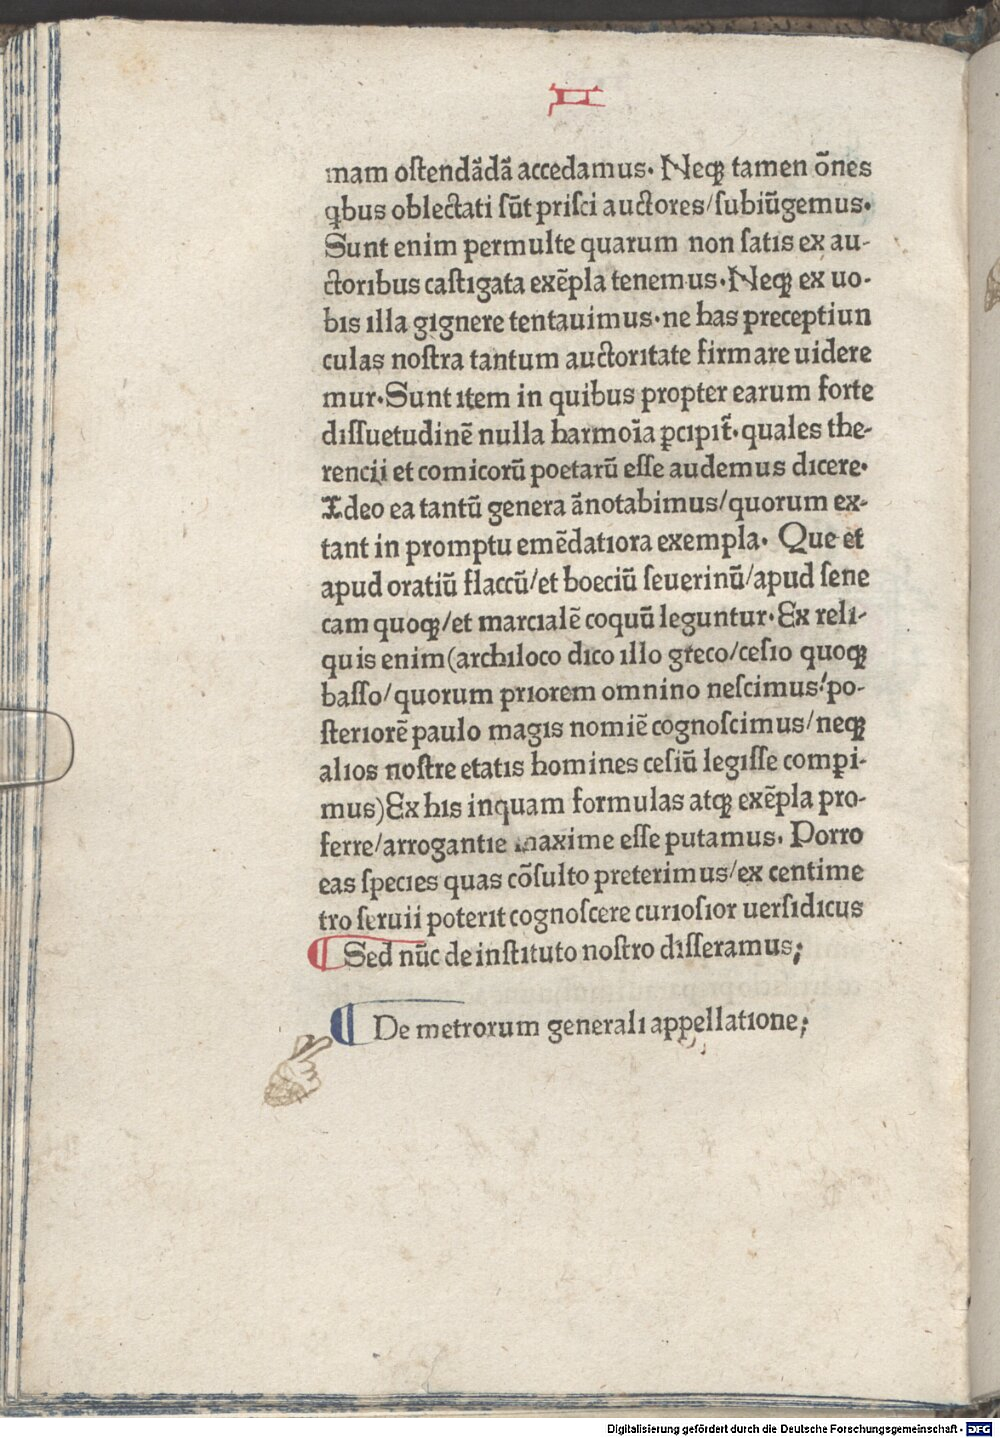 II
mam ostendãdã accedamus. Neqꝫ tamen õnes
qbus oblectati sũt prisci auctores/subiũgemus.
Sunt enim permulte quarum non satis ex au-
ctoribus castigata exẽpla tenemus. Neqꝫ ex uo-
bis illa gignere tentauimus. ne has preceptiun
culas nostra tantum auctoritate firmare uidere
mur. Sunt item in quibus propter earum forte
dissuetudinẽ nulla harmoĩa ꝑcipit̃. quales the-
rencii et comicorũ poetarũ esse audemus dicere.
Ideo ea tantũ genera ãnotabimus/quorum ex-
tant in promptu emẽdatiora exempla. Que et
apud oratiũ flaccũ/et boeciũ seuerinũ/apud sene
cam quoqꝫ/et marcialẽ coquũ leguntur. Ex reli-
quis enim(archiloco dico illo greco/cesio quoqꝫ
basso/quorum priorem omnino nescimus/po-
steriorẽ paulo magis nomiẽ cognoscimus/neqꝫ
alios nostre etatis homines cesiũ legisse comꝑi-
mus)Ex his inquam formulas atqꝫ exẽpla pro-
ferre/arrogantie maxime esse putamus. Porro
eas species quas cõsulto preterimus/ex centime
tro seruii poterit cognoscere curiosior uersidicus
¶ Sed nũc de instituto nostro disseramus;
¶ De metrorum generali appellatione;
Digitalisierung gefördert durch die Deutsche Forschungsgemeinschaft - DFG